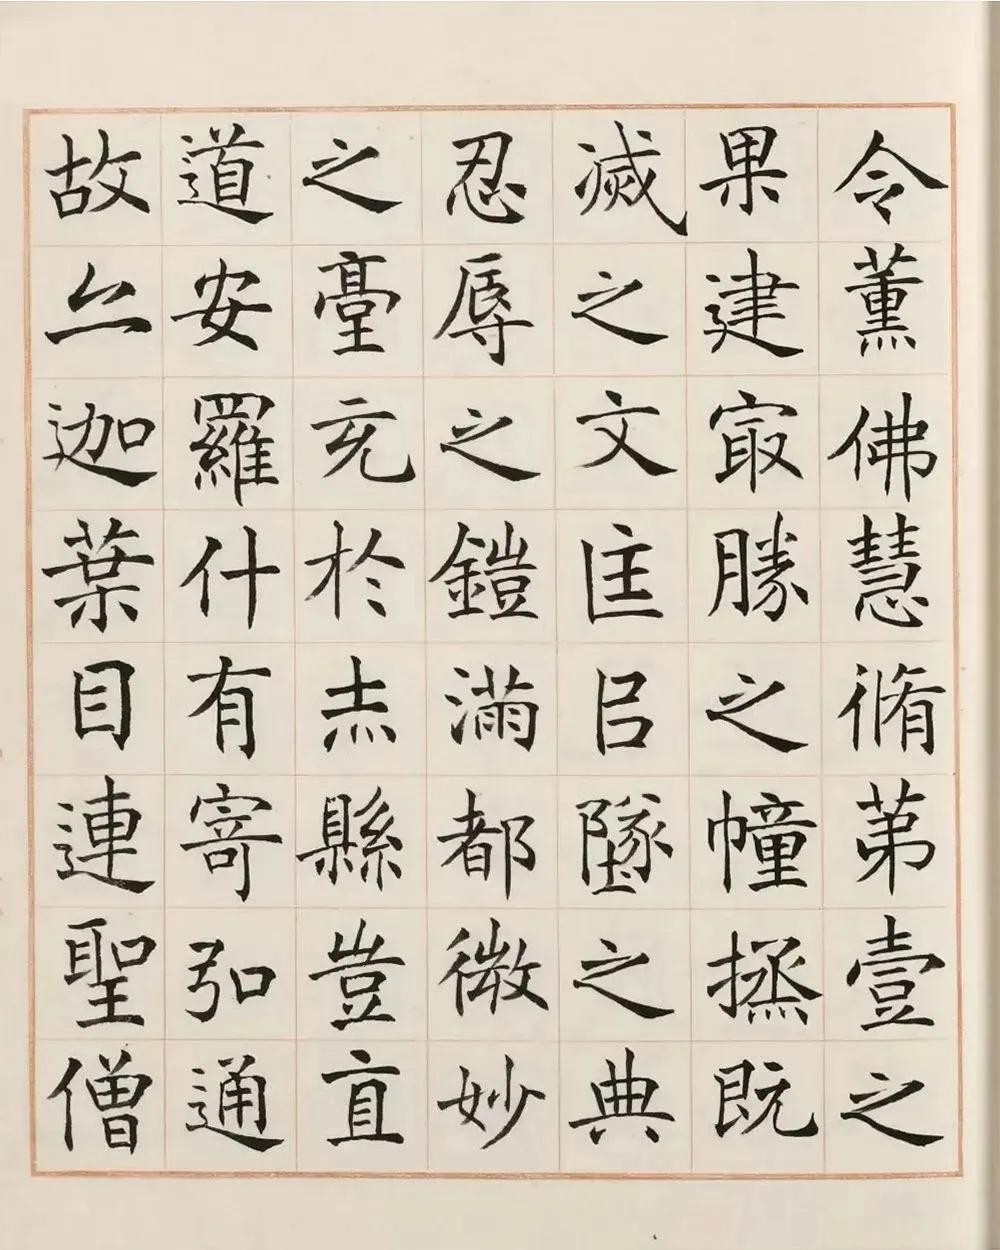 令薰佛慧脩第壹之
果建㝡勝之幢拯既
滅之文匡㠯墜之典
忍辱之鎧滿都微妙
之臺充於赤縣豈直
道安羅什有寄弘通
故亦迦葉目連聖僧